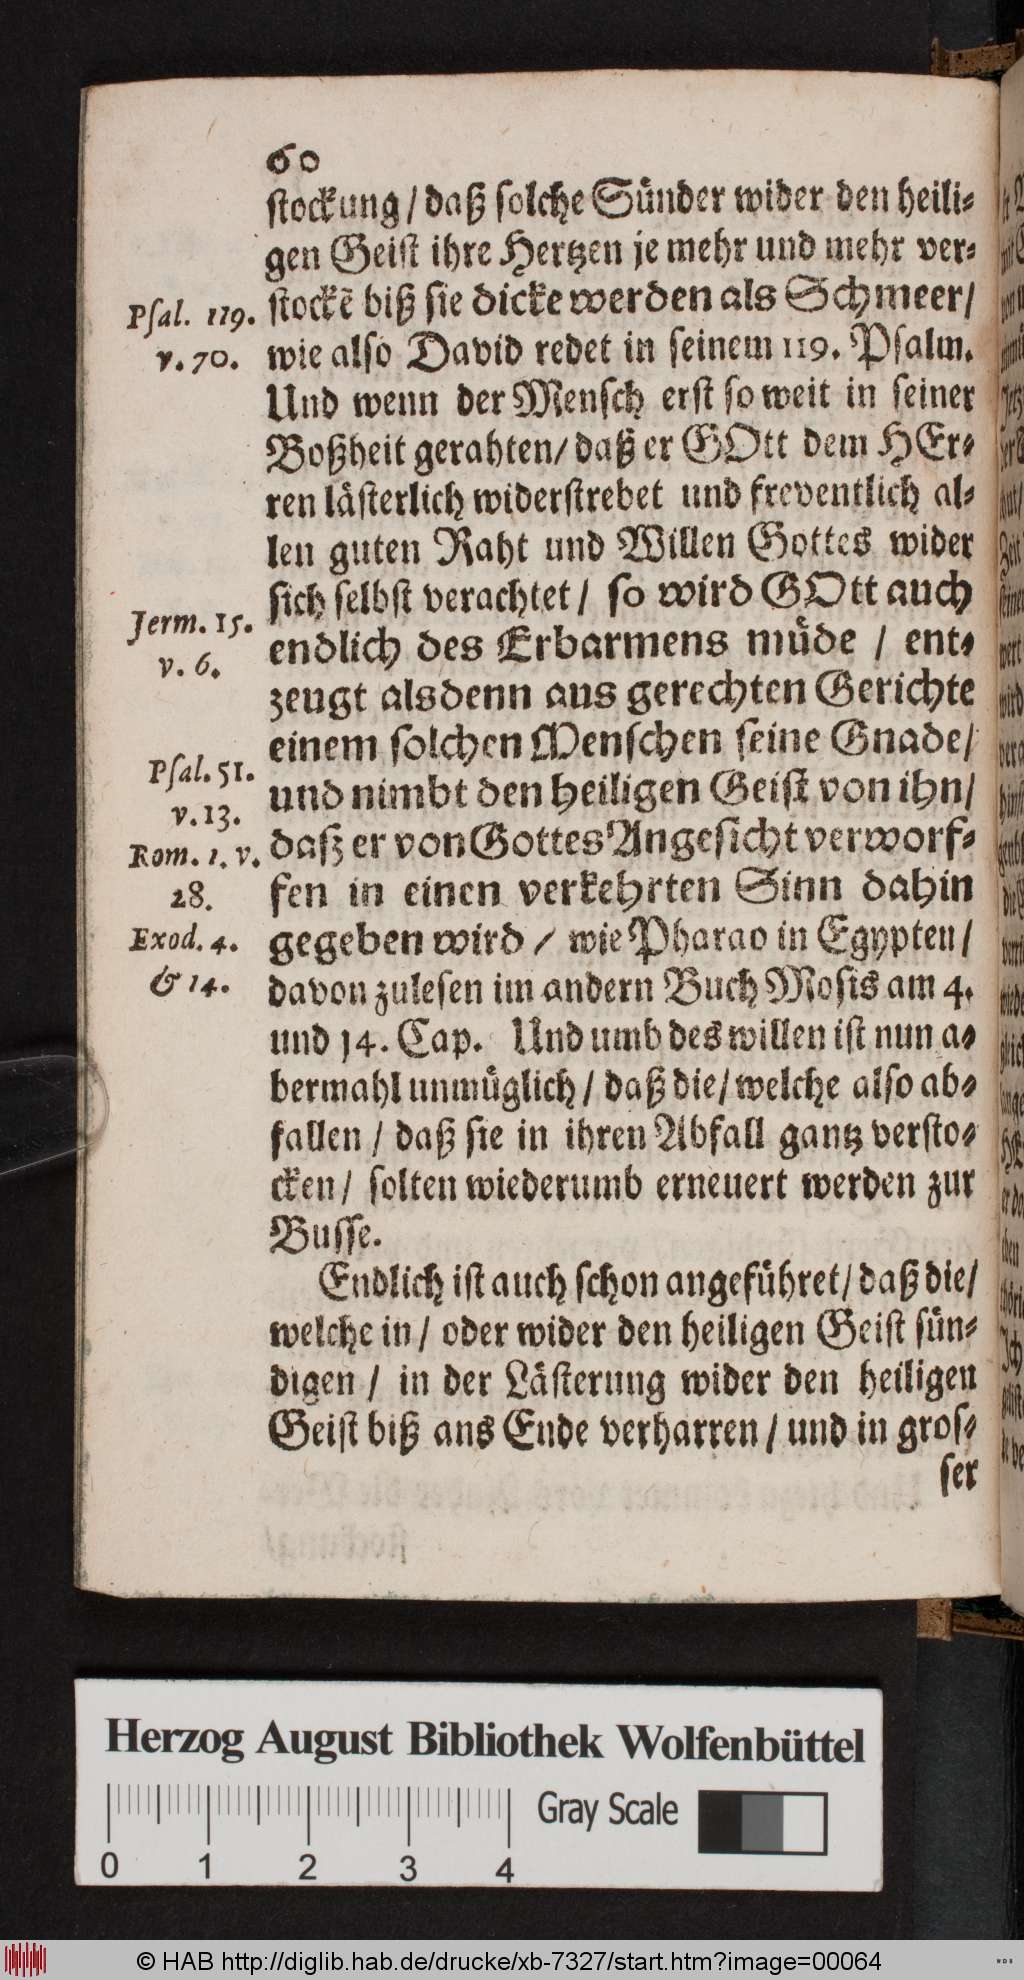 60
stockung / daß solche Sünder wider den heili-
gen Geist ihre Hertzen je mehr und mehr ver-
Psal. 119. stockẽ biß sie dicke werden als Schmeer /
v. 70. wie also David redet in seinem 119. Psalm.
Und wenn der Mensch erst so weit in seiner
Boßheit gerahten / daß er GOtt dem HEr-
ren lästerlich widerstrebet und freventlich al-
len guten Raht und Willen Gottes wider
sich selbst verachtet / so wird GOtt auch
Jerm. 15. endlich des Erbarmens müde / ent-
v. 6. zeugt alsdenn aus gerechten Gerichte
einem solchen Menschen seine Gnade /
Psal. 51. und nimbt den heiligen Geist von ihn /
v. 13.
Rom. 1. v. daß er von Gottes Angesicht verworf-
28. fen in einen verkehrten Sinn dahin
Exod. 4. gegeben wird / wie Pharao in Egypten /
& 14. davon zulesen im andern Buch Mosis am 4.
und 14. Cap. Und umb des willen ist nun a-
bermahl unmüglich / daß die / welche also ab-
fallen / daß sie in ihren Abfall gantz versto-
cken / solten wiederumb erneuert werden zur
Busse.
Endlich ist auch schon angeführet / daß die /
welche in / oder wider den heiligen Geist sün-
digen / in der Lästerung wider den heiligen
Geist biß ans Ende verharren / und in gros-
ser
Herzog August Bibliothek Wolfenbüttel
Gray Scale
0 1 2 3 4
© HAB http://diglib.hab.de/drucke/xb-7327/start.htm?image=00064